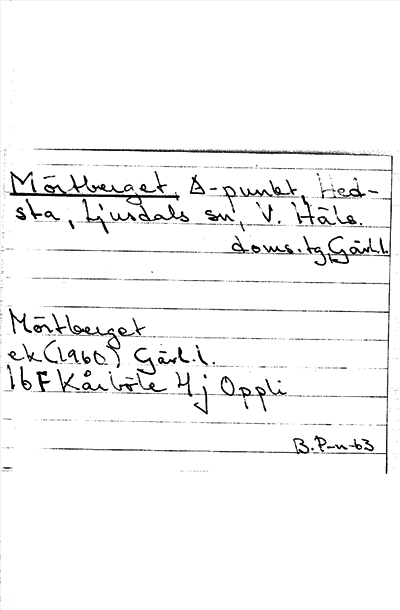 Mörtberget, Δ-punkt, Hed-
sta, Ljusdals sn, V. Häls.
doms. tg, Gävl.l.
Mörtberget
ek (1960) Gävl.l.
16F Kårböle 4j Oppli
B.P-n-63